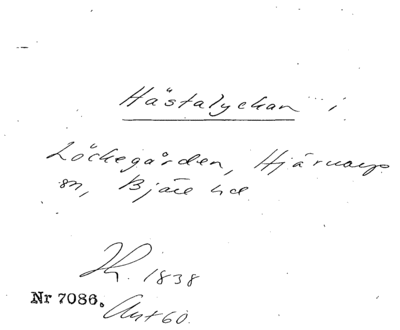 Hästalyckan i
Löckegården, Hjärnarps
sn, Bjäre hd
1838
Nr 7086.
Ant 60.